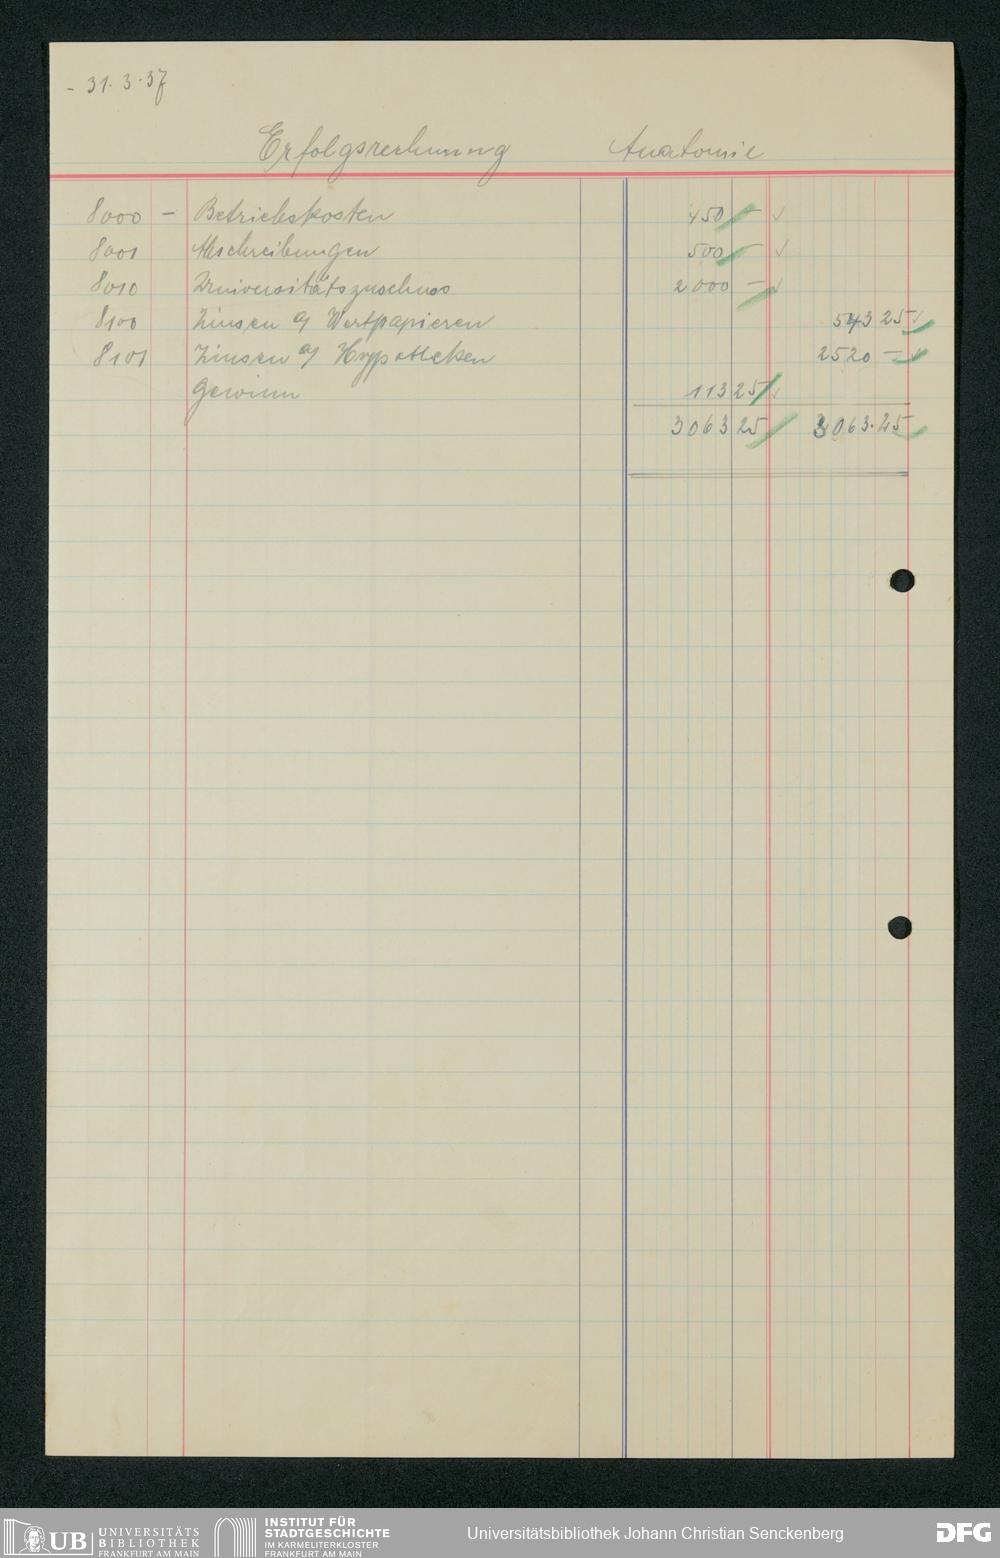 - 31. 3. 37
Erfolgsrechnung Anatomie
8000 - Betriebskosten 450 -
8001 Abschreibungen 500 -
8010 Universitätszuschuss 2000 -
8100 Zinsen a/ Wertpapieren 543 25
8101 Zinsen a/ Hypotheken 2520 -
Gewinn 113 25
3063 25 3063.25
UB UNIVERSITÄTS
BIBLIOTHEK
FRANKFURT AM MAIN
INSTITUT FÜR
STADTGESCHICHTE
IM KARMELITERKLOSTER
FRANKFURT AM MAIN
Universitätsbibliothek Johann Christian Senckenberg
DFG